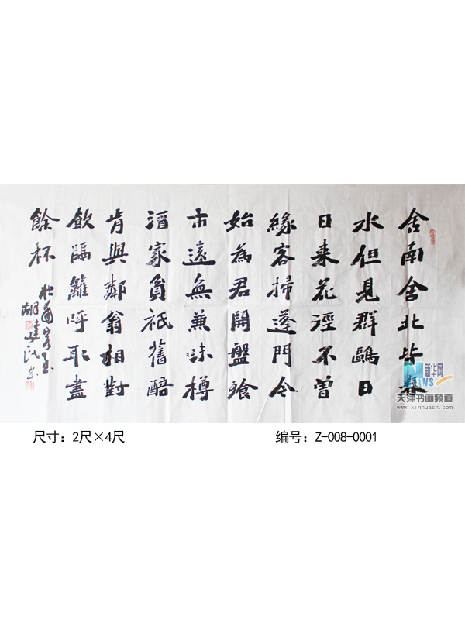 舍南舍北皆春
水但見群鷗日
日來花徑不曾
緣客掃蓬門今
始為君開盤飧
市遠無兼味樽
酒家貧衹舊醅
肯與鄰翁相對
飲隔籬呼取盡
餘杯
杜甫客至
新华网
NEWS
天津书画频道
尺寸：2尺×4尺
编号：Z-008-0001